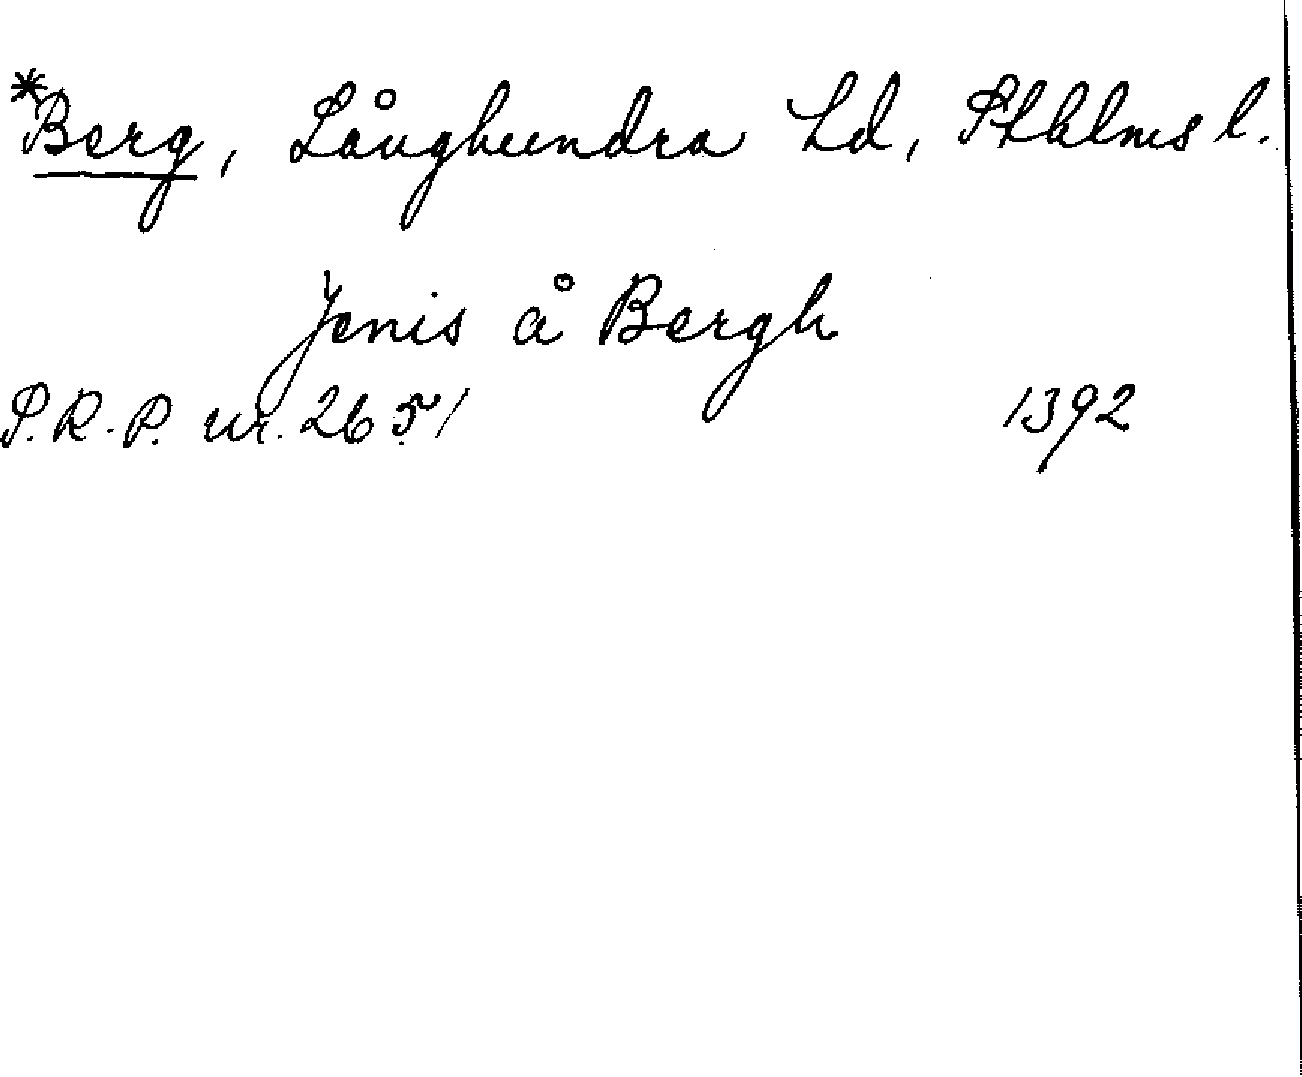 *Berg, Långhundra hd, Sthlms l.
Jenis å Bergh
S.R.P. nr. 2651 1392